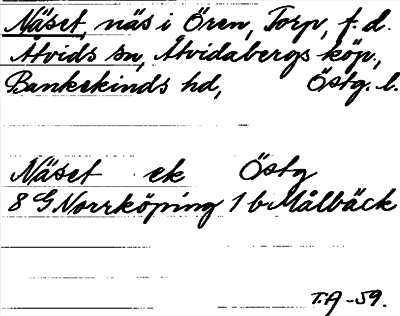 Näset, näs i Ören, Torp, f. d.
Åtvids sn, Åtvidabergs köp.,
Bankekinds hd, Östg. l.
Näset ek Östg
8 G Norrköping 1 b Målbäck
T.A -59.